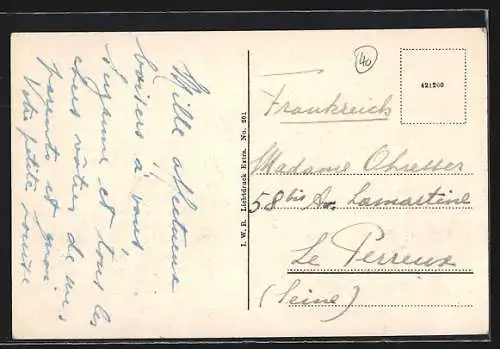 Mille affectueux
baisers à vous
Suzanne et tous les
chers vôtres de mes
parents et moi
Votre petite Louise
I. W. B. Lichtdruck Extra. No. 201
40
421260
Frankreich
Madame Ohresser
58 bis Av. Lamartine
Le Perreux
(Seine)